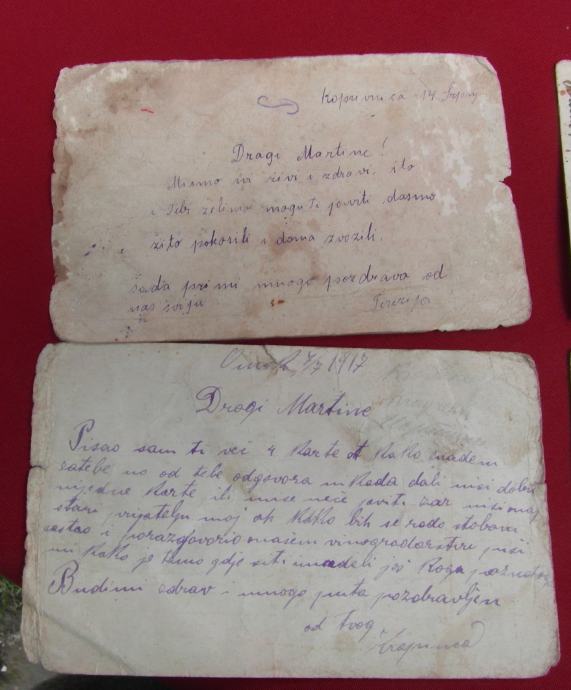 Koprivnica 14. Srpnj
Dragi Martine!
Mismo svi živi i zdravi. ito
i Tebi želimo mogu Ti javiti dasmo
žito pokosili i doma zvozili.
sada primi mnogo pozdrava od
nas sviju
Terezija
7/7 1917
Dragi Martine
Pisao sam ti več 4 karte kako znadem
zatebe no od tebe odgovora nikada dali nisi dobio
nijedne karte ili mise neče javiti zar nisi moj
stari prijatelju moj oh kako bih se rado stobom
sastao i porazgovorio onašem vinogradarstvu piši
mi kako je tamo gdje siti imadeli još koga poznatog
Budimi zdrav i mnogo puta pozdravljen
od tvog